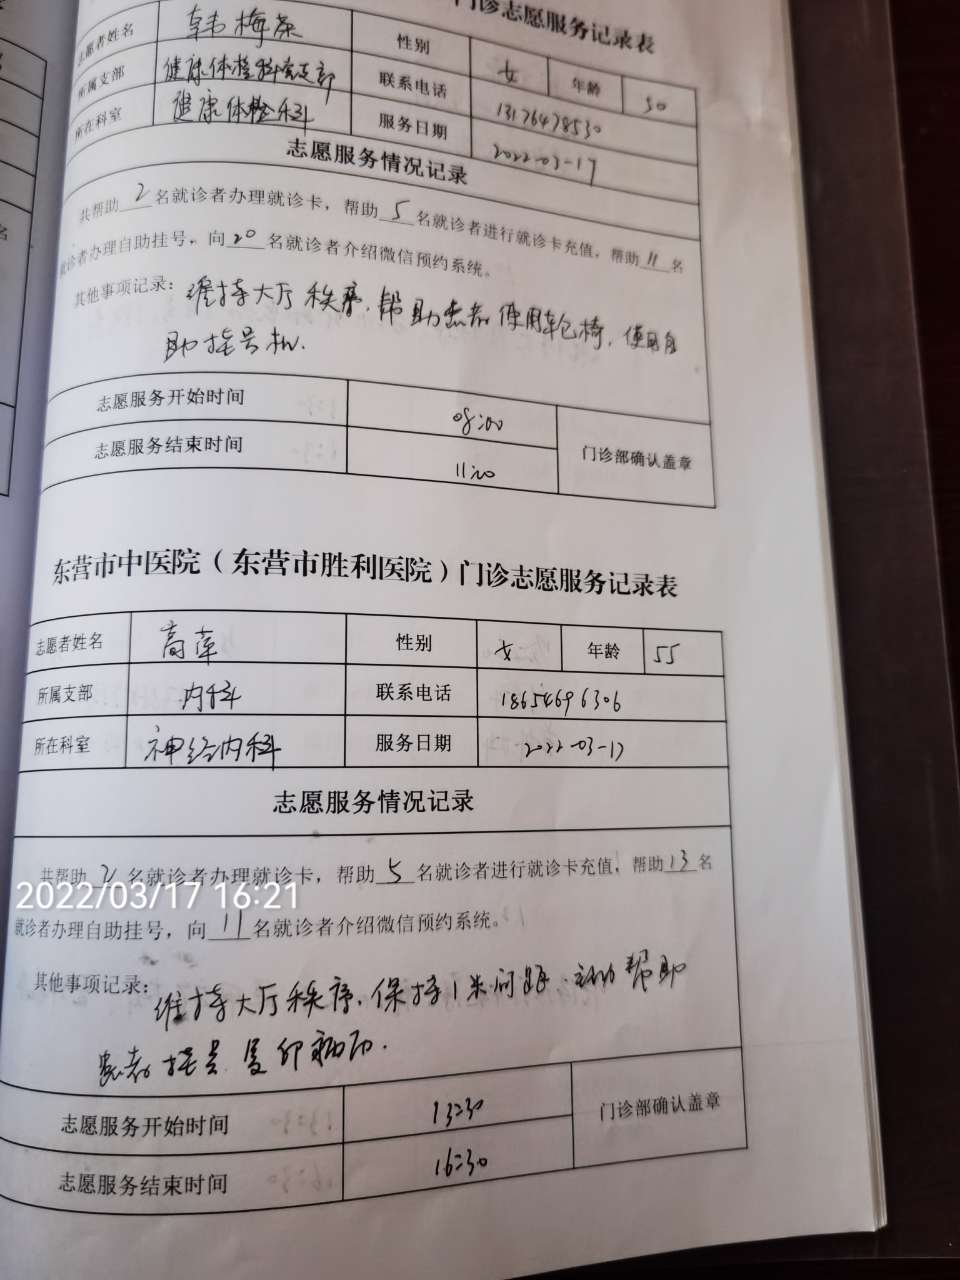 门诊志愿服务记录表
志愿者姓名 韩梅荼 性别 女 年龄 50
所属支部 健康体检科党支部 联系电话 13176478530
所在科室 健康体检科 服务日期 2022-03-17
志愿服务情况记录
共帮助2名就诊者办理就诊卡，帮助5名就诊者进行就诊卡充值，帮助11名
就诊者办理自助挂号，向20名就诊者介绍微信预约系统。
其他事项记录：维持大厅秩序，帮助患者使用轮椅，使用自
助挂号机.
志愿服务开始时间 08:00
志愿服务结束时间 11:20 门诊部确认盖章
东营市中医院（东营市胜利医院）门诊志愿服务记录表
志愿者姓名 高萍 性别 女 年龄 55
所属支部 内科 联系电话 18654696306
所在科室 神经内科 服务日期 2022-03-17
志愿服务情况记录
共帮助2名就诊者办理就诊卡，帮助5名就诊者进行就诊卡充值，帮助13名
2022/03/17 16:21
就诊者办理自助挂号，向11名就诊者介绍微信预约系统。
其他事项记录：
维持大厅秩序，保持1米间距，主动帮助
患者挂号 复印病历.
志愿服务开始时间 13:30 门诊部确认盖章
志愿服务结束时间 16:30